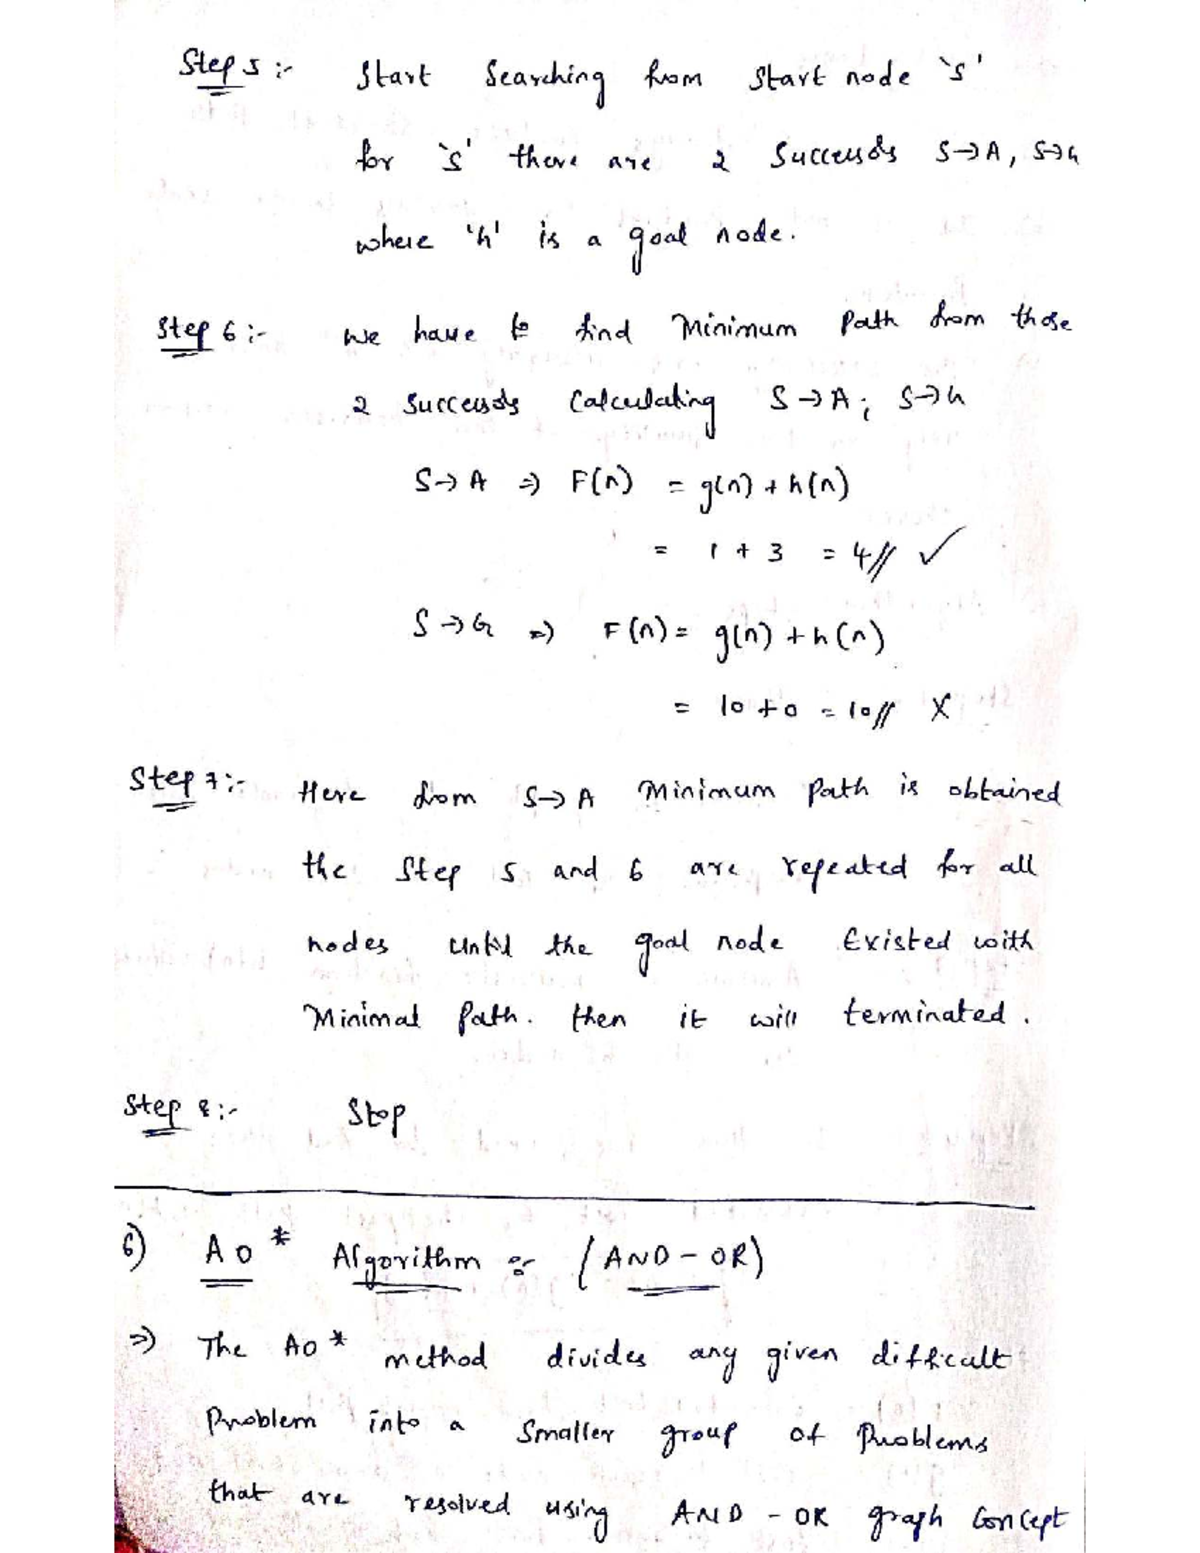 Step 5 :- Start Searching from Start node 's'
for 's' there are 2 Successors S→A, S→G
where 'G' is a goal node.
Step 6 :- we have to find Minimum Path from those
2 Successors Calculating S→A; S→G
S→A ⇒ F(n) = g(n) + h(n)
= 1 + 3 = 4// ✓
S→G ⇒ F(n) = g(n) + h(n)
= 10 + 0 = 10// X
Step 7 :- Here from S→A Minimum Path is obtained
the Step 5 and 6 are repeated for all
nodes until the goal node Existed with
Minimal Path. then it will terminated.
Step 8 :- Stop
6) AO* Algorithm :- (AND-OR)
⇒ The AO* method divides any given difficult
Problem into a Smaller group of Problems
that are resolved using AND-OR graph Concept